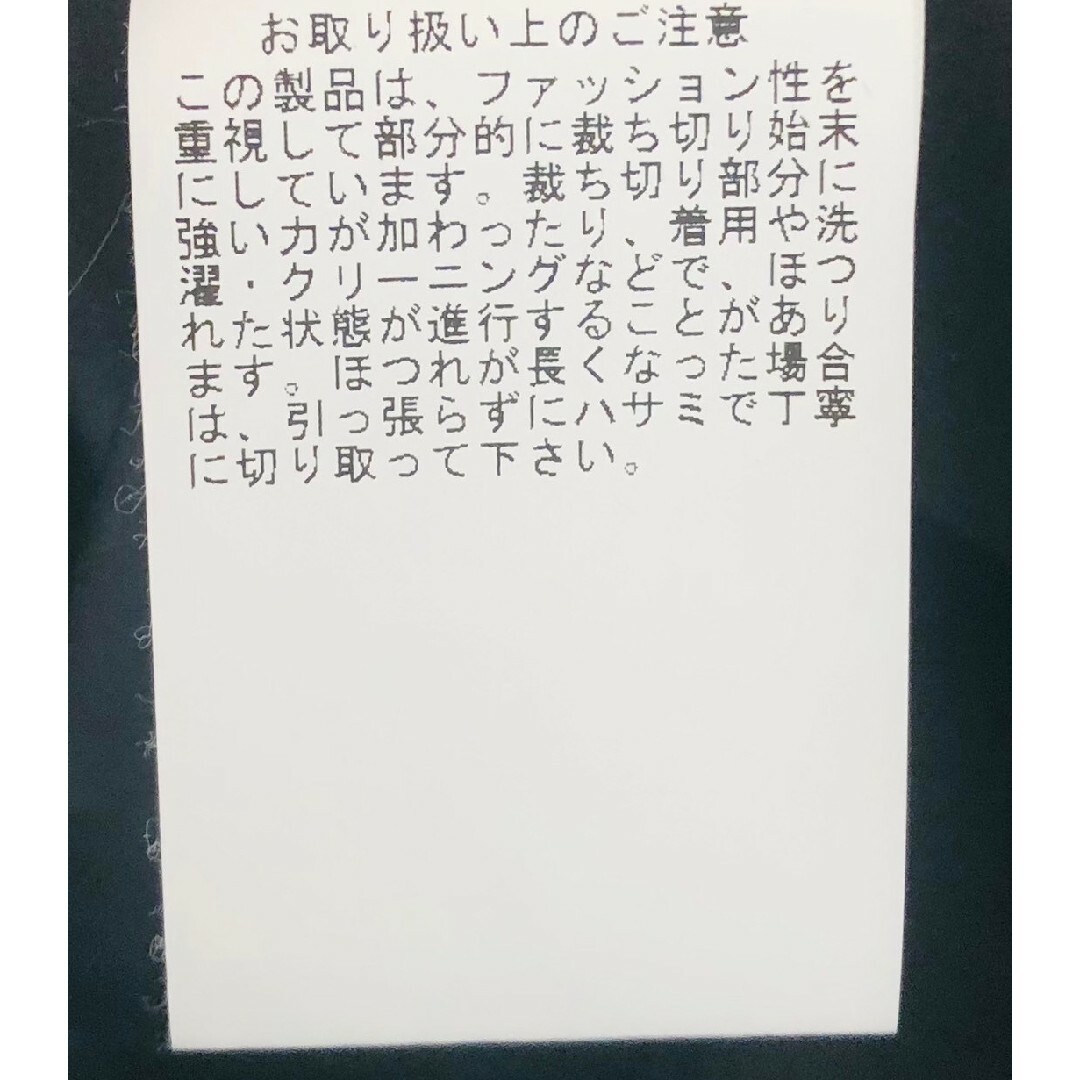 お取り扱い上のご注意
この製品は、ファッション性を
重視して部分的に裁ち切り始末
にしています。裁ち切り部分に
強い力が加わったり、着用や洗
濯・クリーニングなどで、ほつ
れた状態が進行することがあり
ます。ほつれが長くなった場合
は、引っ張らずにハサミで丁寧
に切り取って下さい。